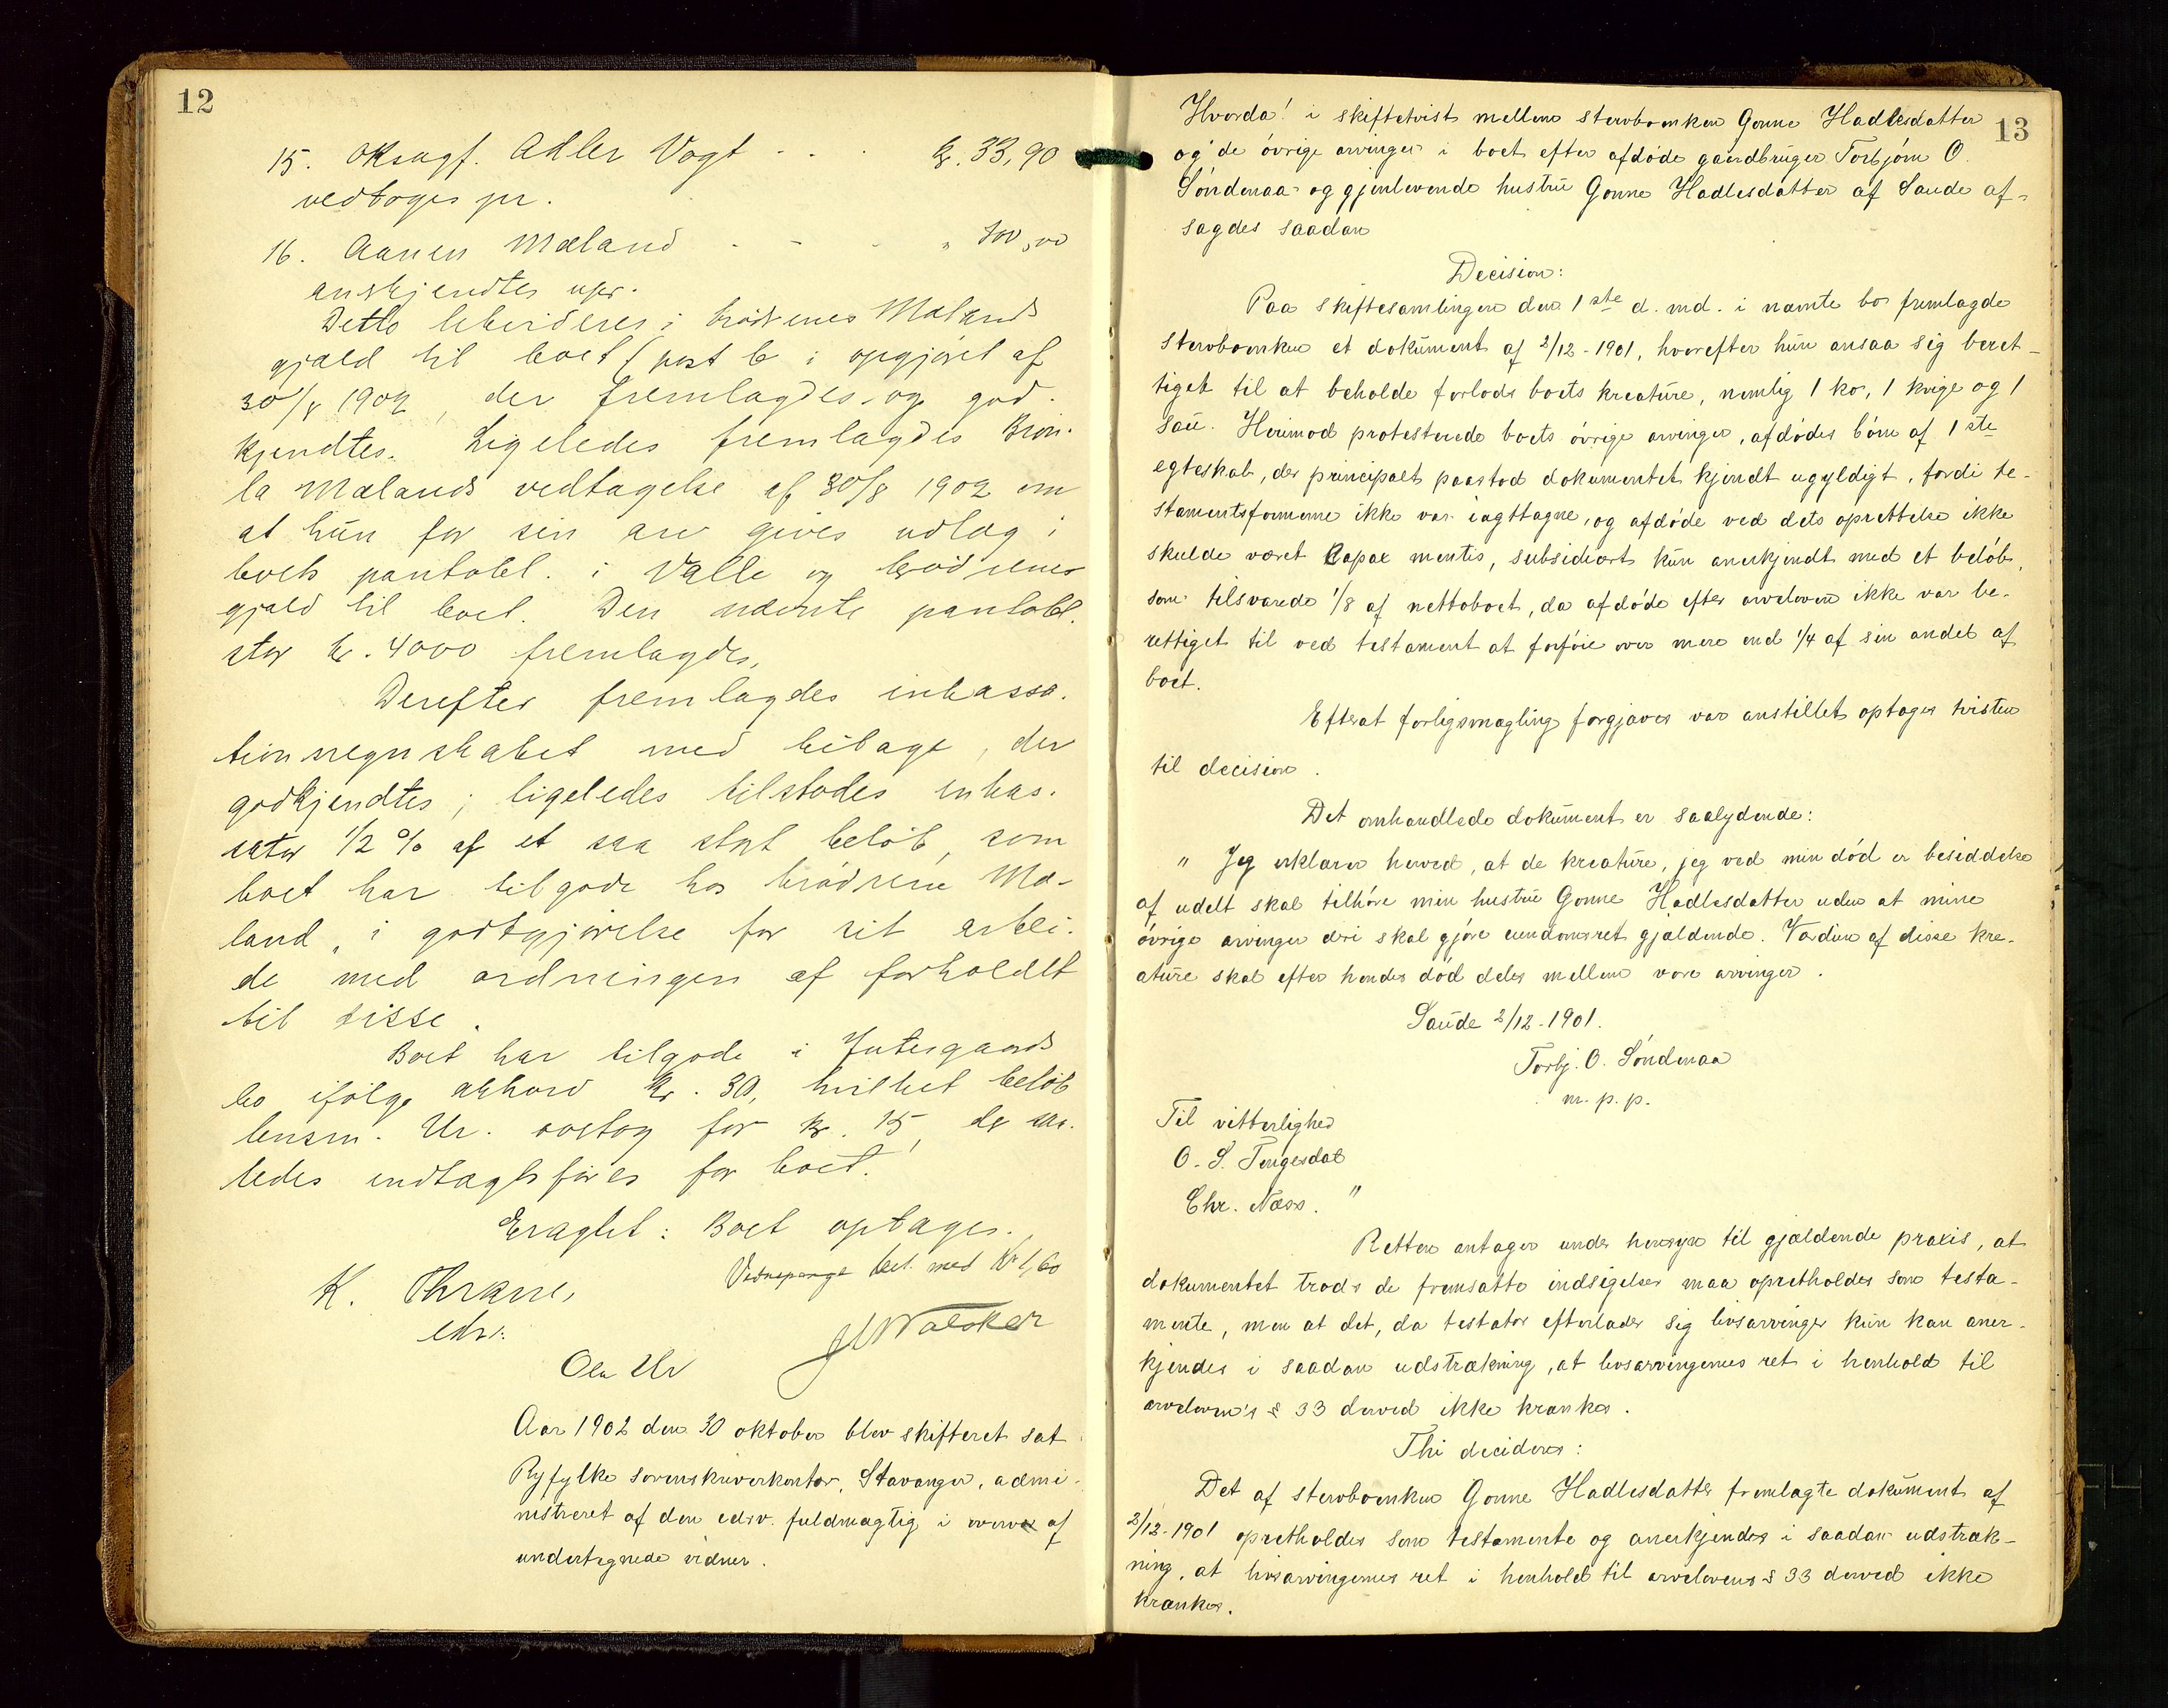 12
15. oksagf. Adler Vogt - - - kr. 33,90
vedtoges pr.
16. Aanen Mæland - - - " 500,00
anerkjendtes upr.
Dette likvideres i brødrenes Mælands
gjæld til boet (post 6 i opgjøret af
30/8 1902, der fremlagdes og god-
kjendtes. Ligeledes fremlagdes Bron-
la Mælands vedtagelse af 30/8 1902 om
at hun for sin arv gives udlæg i
boets pantobl. i Valle og brødrenes
gjæld til boet. Den nævnte pantobl.
stor kr. 4000 fremlagdes.
Derefter fremlagdes inkassa-
tionsregnskabet med bilage, der
godkjendtes; ligeledes tilstodes inkas-
sator 1/2 % af et saa stort beløb, som
boet har tilgode hos brødrene Mæ-
land, i godtgjørelse for sit arbei-
de med ordningen af forholdet
til disse.
Boet har tilgode i
bo ifølge akkord kr. 30, hvilket beløb
lensm. Ur. overtog for kr. 15, der saa-
ledes indtægtsføres for boet.
Eragtet: Boet optages.
Vidnepenge bet. med Kr 1,60
K. Thrane,
edsv.
Ola Ur
Aar 1902 den 30 oktober blev skifteret sat
Ryfylke sorenskriverkontor, Stavanger, admi-
nistreret af den edsv. fuldmægtig i overvær af
undertegnede vidner.
13
Hvorda! i skiftetvist mellem stervboenken Gonne Hadlesdatter
og de övrige arvinger i boet efter afdöde gaardbruger Torbjörn O.
Söndenaa og gjenlevende hustru Gonne Hadlesdatter af Saude af-
sagdes saadan
Decision:
Paa skiftesamlingen den 1ste d. md. i nævnte bo fremlagde
stervboenken et dokument af 2/12-1901, hvorefter hun ansaa sig beret-
tiget til at beholde forlods boets kreature, nemlig 1 ko, 1 kvige og 1
sau. Herimod protesterede boets övrige arvinger, afdödes börn af 1ste
egteskab, der principalt paastod dokumentet kjendt ugyldigt, fordi te-
stamentsformerne ikke var iagttagne, og afdöde ved dets oprettelse ikke
skulde været capax mentis, subsidiært kun anerkjendt med et belöb,
som tilsvarede 1/8 af nettoboet, da afdöde efter arveloven ikke var be-
rettiget til ved testament at forföie over mere end 1/4 af sin andel af
boet.
Efterat forligsmægling forgjæves var anstillet optages tvisten
til decision.
Det omhandlede dokument er saalydende:
" Jeg erklærer herved, at de kreature, jeg ved min död er besiddelse
af udelt skal tilhöre min hustru Gonne Hadlesdatter uden at mine
övrige arvinger deri skal gjöre eiendomsret gjældende. Værdien af disse kre-
ature skal efter hendes död deles mellem vore arvinger.
Saude 2/12-1901.
Torbj. O. Söndenaa
m. p. p.
Til vitterlighed
O. S. Tengesdal
Chr. Næss. "
Retten antager under hensyn til gjældende praxis, at
dokumentet trods de fremsatte indsigelser maa opretholdes som testa-
mente, men at det, da testator efterlader sig livsarvinger kun kan aner-
kjendes i saadan udstrækning, at livsarvingernes ret i henhold til
arveloven's § 33 derved ikke krænkes.
Thi decideres:
Det af stervboenken Gonne Hadlesdatter fremlagte dokument af
2/12-1901 opretholdes som testamente og anerkjendes i saadan udstræk-
ning, at livsarvingernes ret i henhold til arvelovens § 33 derved ikke
krænkes.